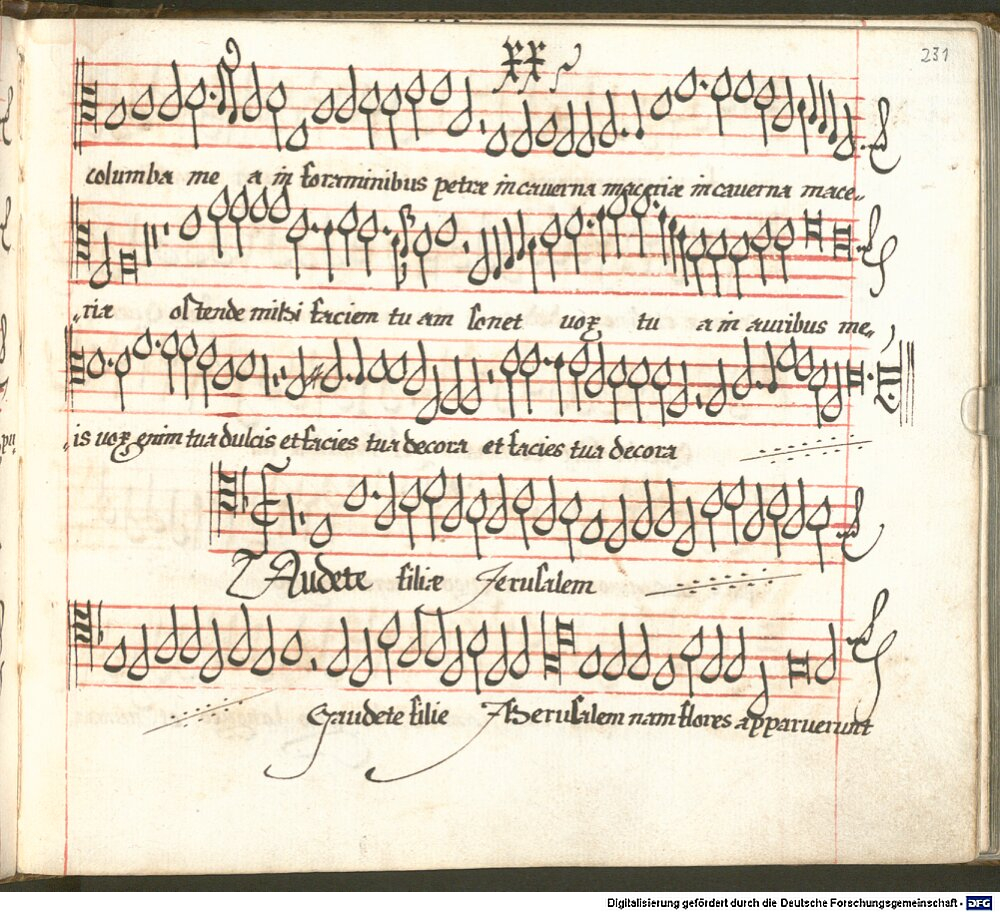 XX
231
columba me a in foraminibus petræ in cauerna maceriæ in cauerna mace„
„riæ ostende mihi faciem tu am sonet uox tu a in auribus me„
„is uox enim tua dulcis et facies tua decora et facies tua decora
Gaudete filiæ Jerusalem
Gaudete filie Jherusalem nam flores apparuerunt
Digitalisierung gefördert durch die Deutsche Forschungsgemeinschaft - DFG